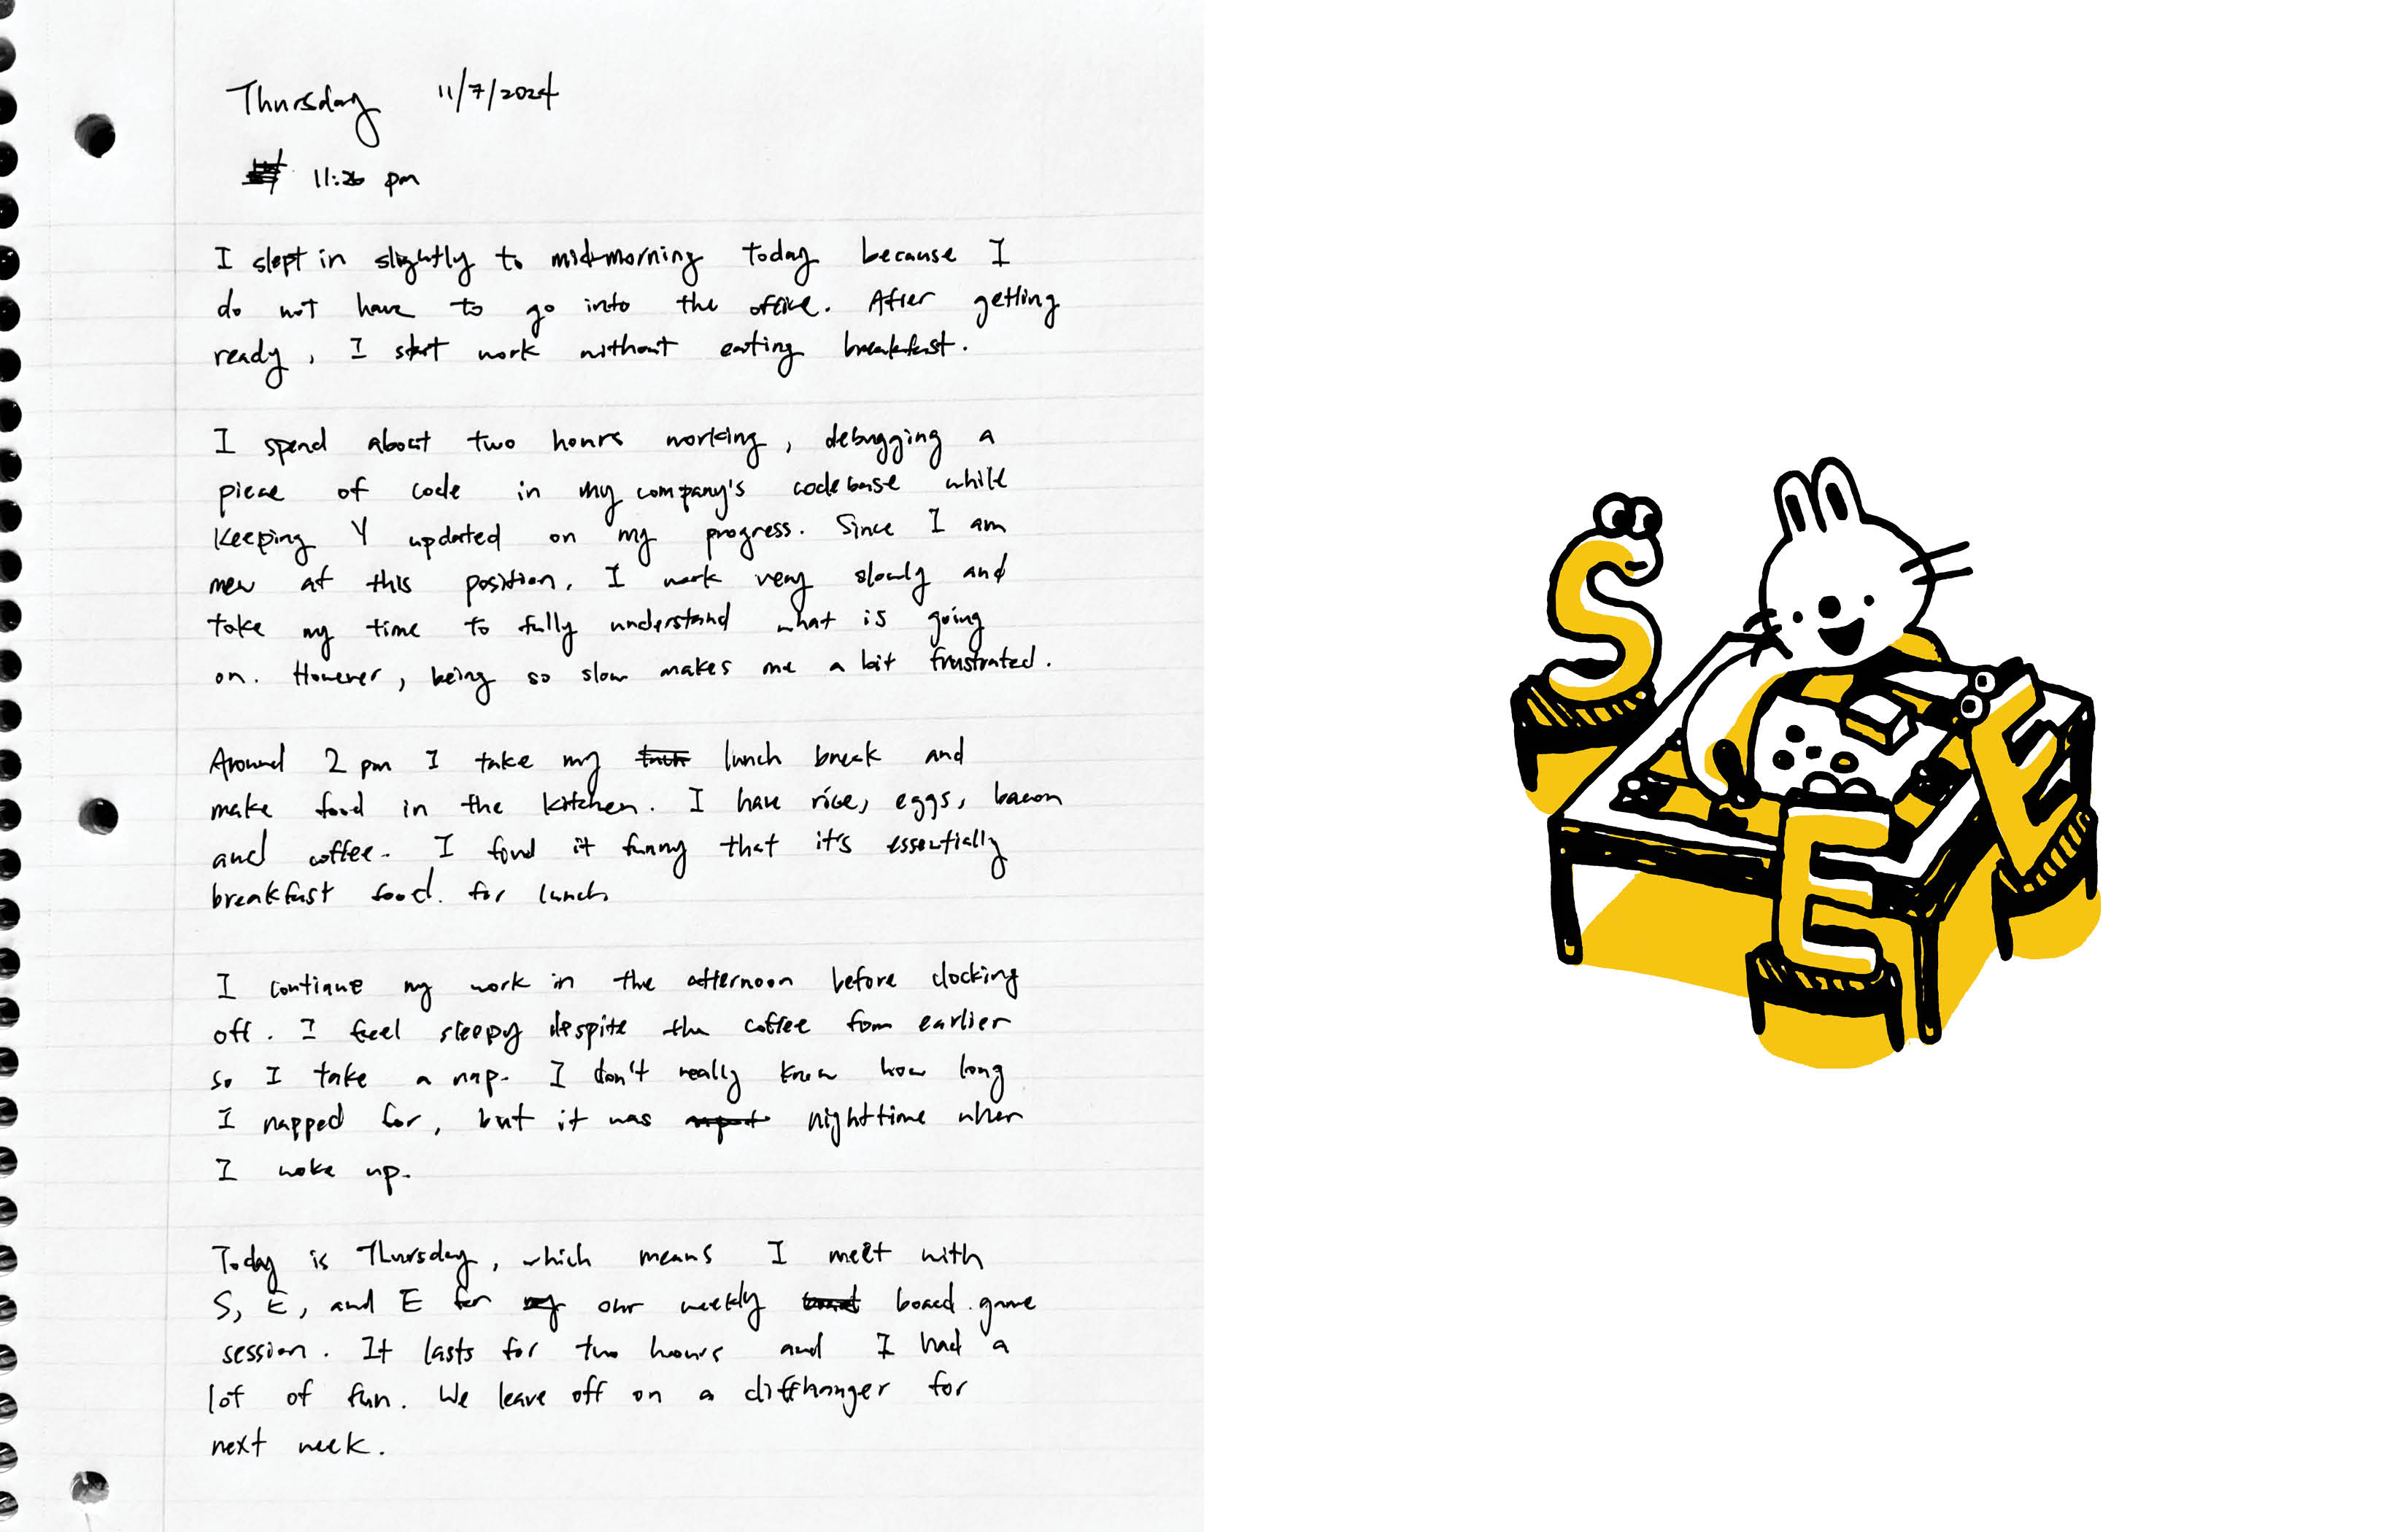 Thursday 11/7/2024
11:26 pm
I slept in slightly to mid-morning today because I
do not have to go into the office. After getting
ready, I start work without eating breakfast.
I spend about two hours working, debugging a
piece of code in my company's codebase while
keeping Y updated on my progress. Since I am
new at this position, I work very slowly and
take my time to fully understand what is going
on. However, being so slow makes me a bit frustrated.
Around 2 pm I take my lunch break and
make food in the kitchen. I have rice, eggs, bacon
and coffee. I find it funny that it's essentially
breakfast food. for lunch
I continue my work in the afternoon before clocking
off. I feel sleepy despite the coffee from earlier
so I take a nap. I don't really know how long
I napped for, but it was nighttime when
I woke up.
Today is Thursday, which means I meet with
S, E, and E for my our weekly board board game
session. It lasts for two hours and I had a
lot of fun. We leave off on a cliffhanger for
next week.
S
E
E